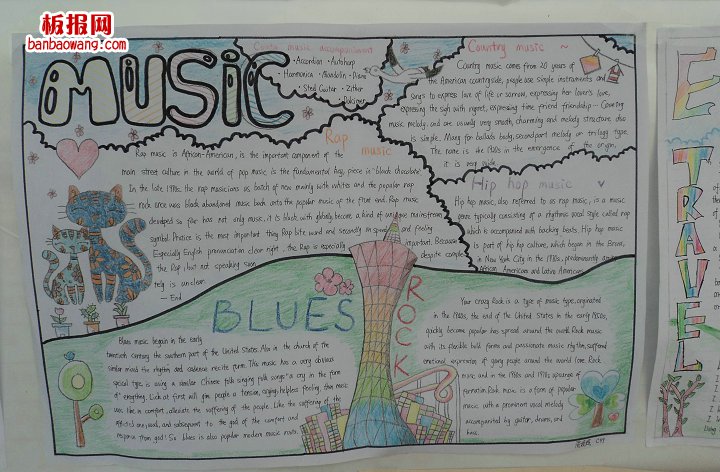 板报网
banbaowang.com
MUSIC
Country music accompaniment
· Accordion · Autoharp
· Harmonica · Mandolin · Piano
· Steel Guitar · Zither
· Dulcimer
Country music ~
Country music comes from 20 years of
the American countryside, people use simple instruments and
songs to express love of life or sorrow, expressing her lover's love,
expressing the sigh with regret, expressing time friend friendship… Country
music melody, and are usually very smooth, charming and melody structure also
is simple. Many for ballads body, second part melody or trilogy type.
The name is the 1920s in the emergence of the origin,
it is very wide.
Rap
music
Rap music is African-American, is the important component of the
main street culture in the world of pop music is the fundamental key, piece is "black chocolate"
In the late 1970s the rap musicians as batch of new mainly with whites and the popular rap
rock once was black abandoned music back onto the popular music of the front end. Rap music
developed so far has not only music, it's black with globally become a kind of unique mainstream
symbol. Practice is the most important they Rap bite word and secondly on speed and feeling
Especially English pronunciation clear right, the Rap is especially important. Because
the Rap, but not speaking soon despite complete
rely is unclear.
— End
Hip hop music
Hip hop music, also referred to as rap music, is a music
genre typically consisting of a rhythmic vocal style called rap
which is accompanied with backing beats. Hip hop music
is part of hip hop culture, which began in the Bronx,
in New York City in the 1970s, predominantly among
African Americans and Latino Americans.
BLUES
Blues music begain in the early
twentieth century the southern part of the United States. Also in the church of the
similar mood the rhythm and cadence recite poem. This music has a very obvious
special type, is using a similar Chinese folk singing folk songs "a cry in the form
of everything. Look at first will give people a tension, crying, helpless feeling, then music
use like in comfort, alleviate the suffering of the people. Like the suffering of the
afflicted one, wail, and subsequent to the god of the comfort and
response from god! So blues is also popular modern music roots.
ROCK
Your crazy Rock is a type of music type, originated
in the 1940s, the end of the United States in the early 1950s,
quickly become popular has spread around the world. Rock music
with its flexible bold forms and passionate music rhythm, suffered
emotional expression of young people around the world love. Rock
music and in the 1960s and 1970s upsurge of
formation. Rock music is a form of popular
music with a prominent vocal melody
accompanied by guitar, drums, and
bass.
E
TRAVEL